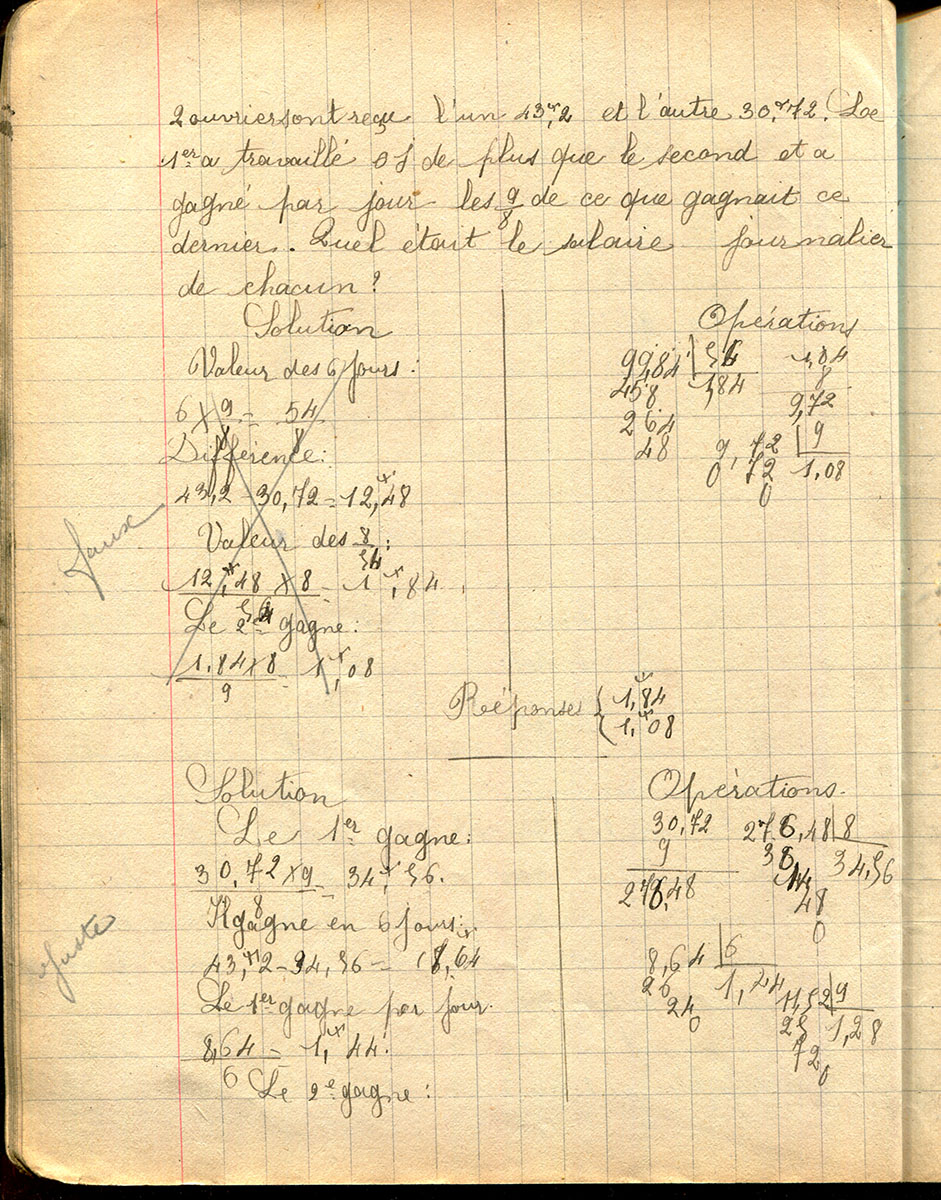 2 ouvriers ont reçu l'un 43,f2 et l'autre 30,f72. Le
1er a travaillé 6 j de plus que le second et a
gagné par jour les 9/8 de ce que gagnait ce
dernier. Quel était le salaire journalier
de chacun?
Solution
Valeur des 6 jours:
6 x 9/8 = 54/8
Différence:
43,2 - 30,72 = 12,f48
Valeur des 8/54:
12,f48 x 8 / 54 = 1f,84
Le 2e gagne:
1,84 x 8 / 9 = 1f,08
faux
Opérations
99,84 54
458 1,84
264
48
1,84
8
9,72
9,72 9
0 72 1,08
0
Réponses { 1,84
1,f08
Solution
Le 1er gagne:
30,72 x 9 / 8 = 34,f56.
Il gagne en 6 jours:
43,f2 - 34,56 = 8,64
Le 1er gagne par jour.
8,64 / 6 = 1,f44.
Le 2e gagne:
Juste
Opérations.
30,72
9
276,48
276,48 8
36 34,56
44
48
0
8,64 6
26 1,44
24
0
11,52 9
25 1,28
72
0